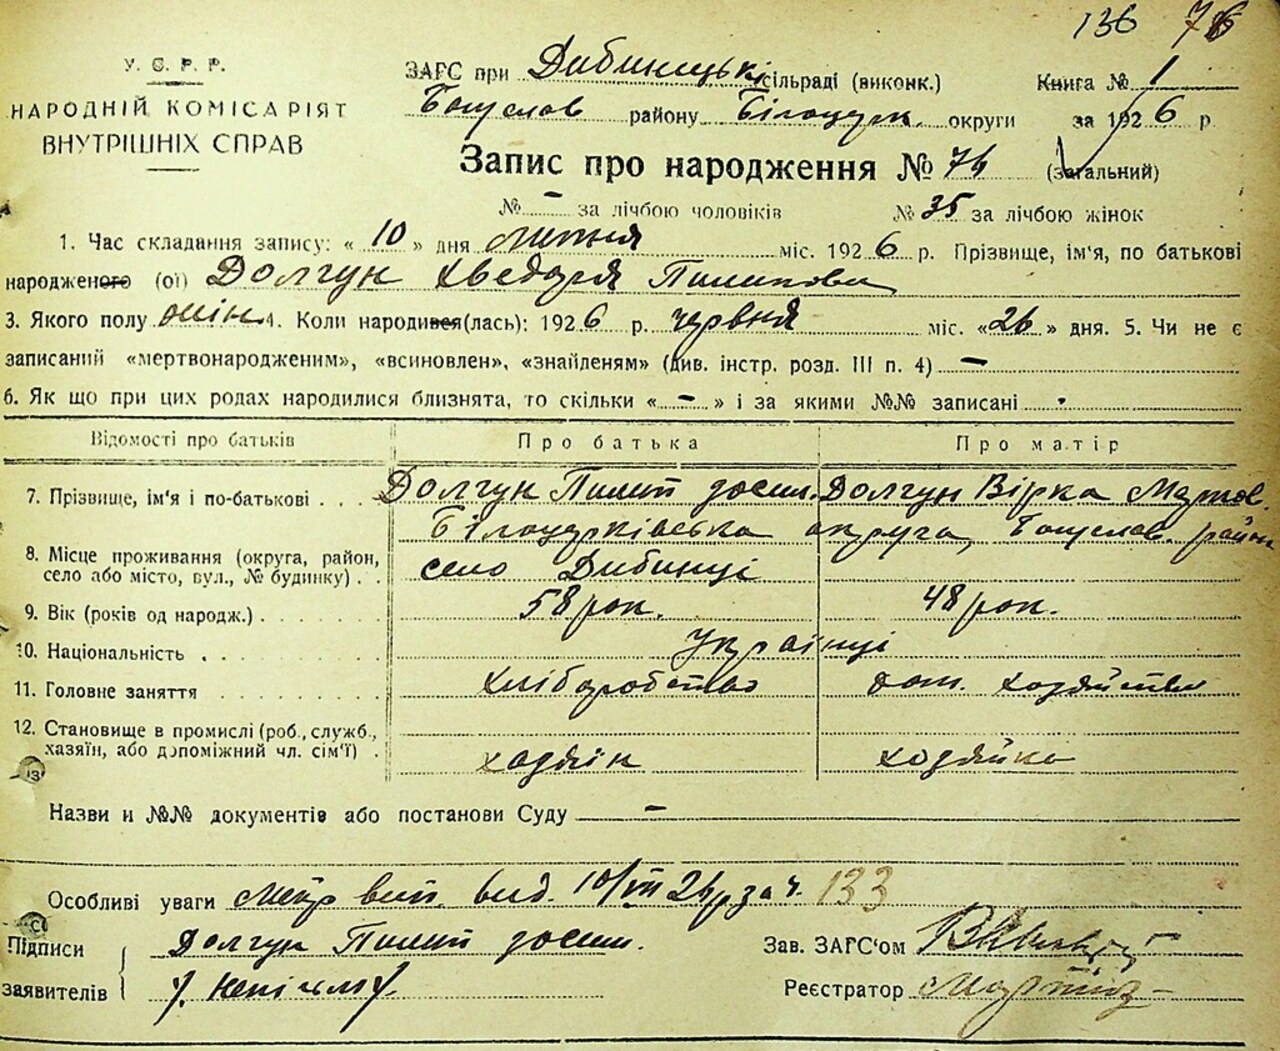 136 76
У. С. Р. Р.
НАРОДНІЙ КОМІСАРІЯТ
ВНУТРІШНІХ СПРАВ
ЗАГС при Дибинецькі сільраді (виконк.) Книга № 1
Богуслав району Білоцерк. округи за 1926 р.
Запис про народження № 76 (загальний)
№ – за лічбою чоловіків № 35 за лічбою жінок
1. Час складання запису: « 10 » дня липня міс. 1926 р. Прізвище, ім'я, по батькові
народженого (ої) Долгун Хведоря Пилипова
3. Якого полу жін. 4. Коли народився(лась): 1926 р. червня міс. «26» дня. 5. Чи не є
записаний «мертвонародженим», «всиновлен», «знайденям» (див. інстр. розд. III п. 4) –
6. Як що при цих родах народилися близнята, то скільки « – » і за якими №№ записані
Відомості про батьків Про батька Про матір
7. Прізвище, ім'я і по-батькові . . . Долгун Пилип Долгун Вірка
Білоцерківська округа, Богуслав. район
8. Місце проживання (округа, район,
село або місто, вул., № будинку) . . село Дибинці
9. Вік (років од народж.) 58 рок. 48 рок.
10. Національність Українці
11. Головне заняття хліборобство дом. хозяйство
12. Становище в промислі (роб., служб.,
хазяїн, або допоміжний чл. сім'ї) . хозяїн хозяйка
Назви и №№ документів або постанови Суду –
Особливі уваги Метр вип. вид. 10/VII 26 р за ч. 133
Підписи Долгун Пилип Зав. ЗАГС'ом
заявителів Реєстратор